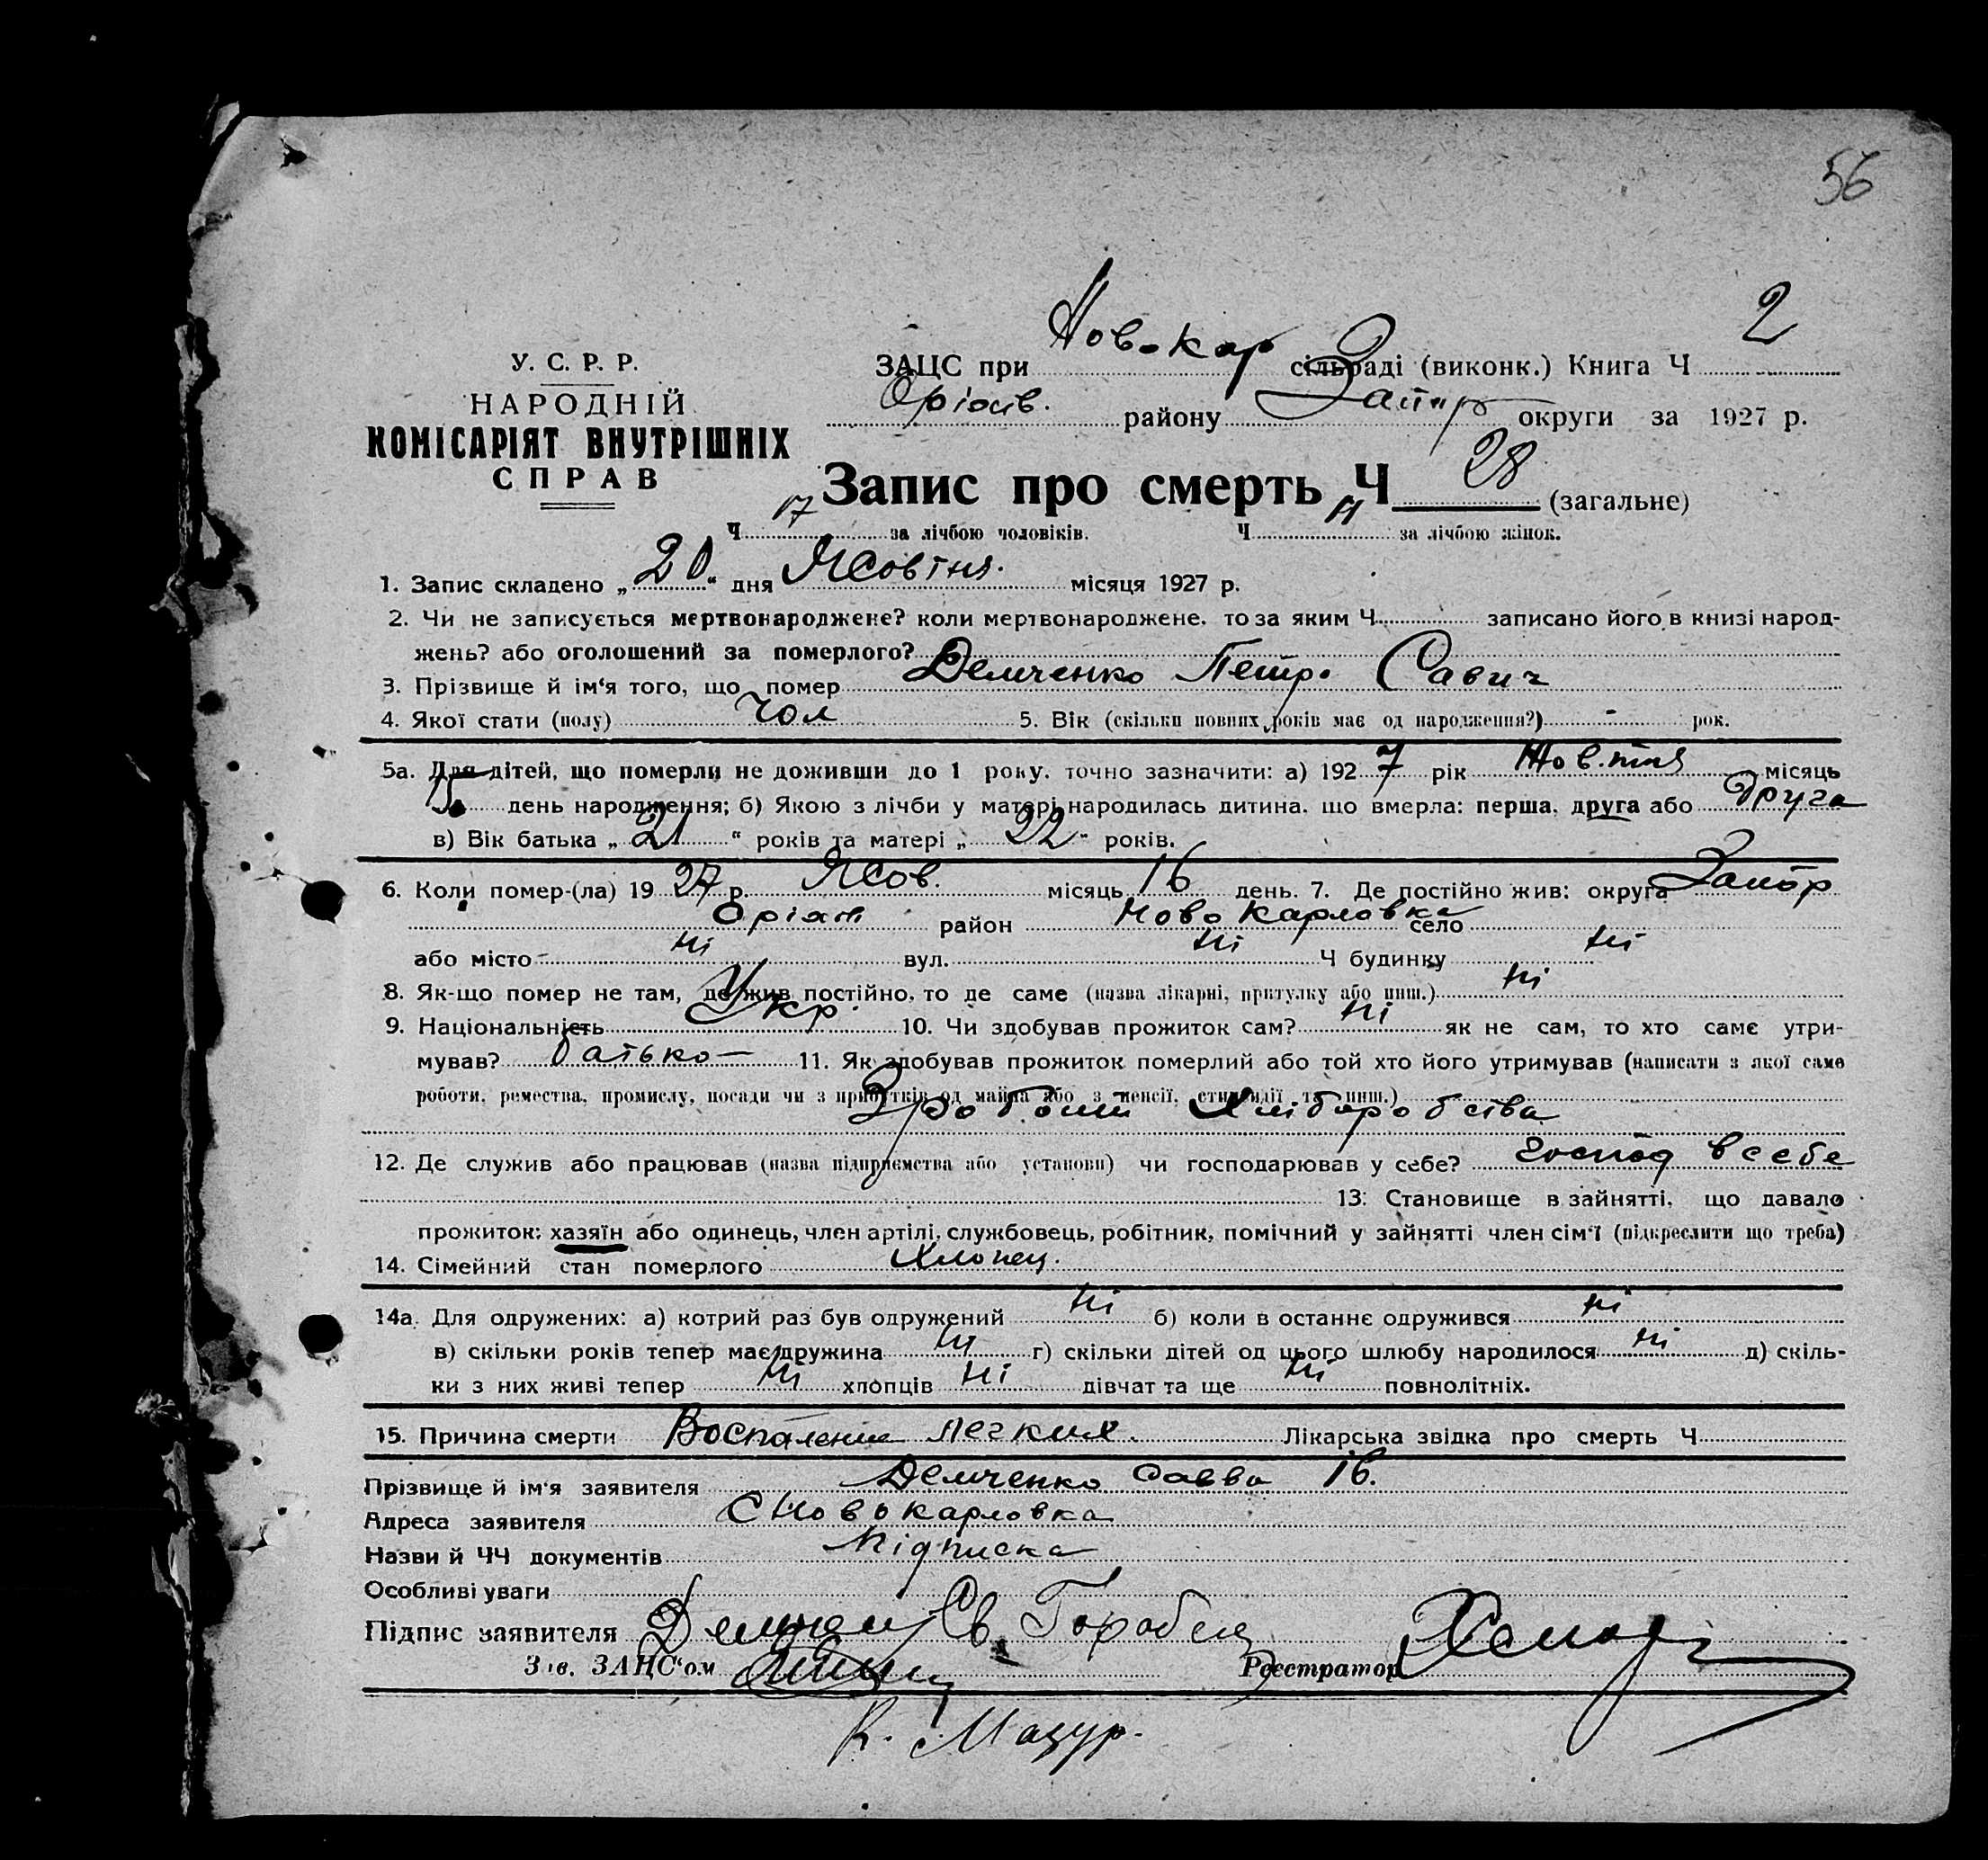 56
Новокар 2
У. С. Р. Р. ЗАЦС при сільраді (виконк.) Книга Ч
НАРОДНІЙ Оріхів. району Запор округи за 1927 р.
КОМІСАРІЯТ ВНУТРІШНІХ
СПРАВ Запис про смерть Ч 28 (загальне)
Ч 17 за лічбою чоловіків. Ч 11 за лічбою жінок.
1. Запис складено „20“ дня Жовтня. місяця 1927 р.
2. Чи не записується мертвонароджене? коли мертвонароджене, то за яким Ч записано його в книзі народ-
жень? або оголошений за померлого?
3. Прізвище й ім'я того, що помер Демченко Петро Савич
4. Якої стати (полу) Чол 5. Вік (скільки повних років має од народження?) - рок.
5а. Для дітей, що померли не доживши до 1 року, точно зазначити: а) 1927 рік Жовтня місяць
день народження; б) Якою з лічби у матері народилась дитина, що вмерла: перша, друга або друга
в) Вік батька „21“ років та матері „22“ років.
6. Коли помер-(ла) 1927 р. Жов. місяць 16 день. 7. Де постійно жив: округа Запор
Оріхів район Ново Карловка село
або місто ні вул. ні Ч будинку ні
8. Як-що помер не там, де жив постійно, то де саме (назва лікарні, притулку або инш.) ні
9. Національність Укр. 10. Чи здобував прожиток сам? ні як не сам, то хто саме утри-
мував? батько — 11. Як здобував прожиток померлий або той хто його утримував (написати з якої саме
роботи, ремества, промислу, посади чи з прибутків од майна або з пенсії, стипендії та инш.)
З роботи Хліборобства
12. Де служив або працював (назва підприємства або установи) чи господарював у себе? Господ в себе
13: Становище в зайнятті, що давало
прожиток: хазяїн або одинець, член артілі, службовець, робітник, помічний у зайнятті член сім'ї (підкреслити що треба)
14. Сімейний стан померлого Хлопец.
14а. Для одружених: а) котрий раз був одружений ні б) коли в останнє одружився ні
в) скільки років тепер має дружина ні г) скільки дітей од цього шлюбу народилося ні д) скіль-
ки з них живі тепер ні хлопців ні дівчат та ще ні повнолітніх.
15. Причина смерти Воспаление легких. Лікарська звідка про смерть Ч
Прізвище й ім'я заявителя Демченко Савва Ів.
Адреса заявителя с Новокарловка
Назви й ЧЧ документів Підписка
Особливі уваги
Підпис заявителя Св. Горобец
Зав. ЗАЦС'ом Реєстратор
К. Мазур.